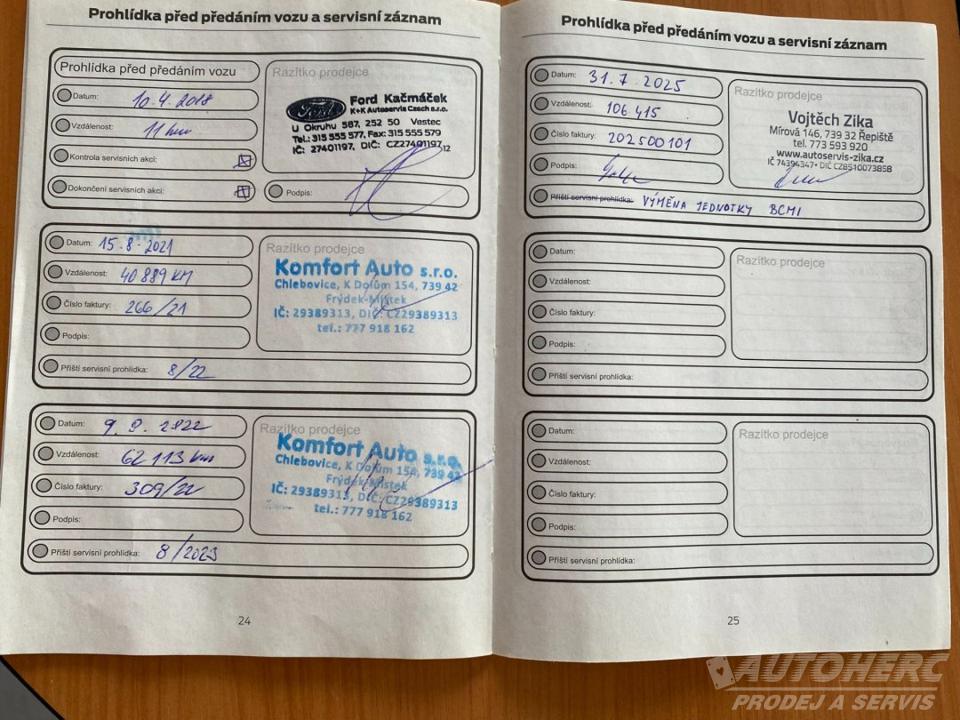 Prohlídka před předáním vozu a servisní záznam
Prohlídka před předáním vozu
Datum: 10.4.2018
Vzdálenost: 11 km
Kontrola servisních akcí:
Dokončení servisních akcí:
Razítko prodejce
Ford
Ford Kačmáček
K+K Autoservis Czech s.r.o.
U Okruhu 587, 252 50 Vestec
Tel.: 315 555 577, Fax: 315 555 579
IČ: 27401197, DIČ: CZ27401197
12
Podpis:
Datum: 15.8.2021
Vzdálenost: 40 889 KM
Číslo faktury: 266/21
Podpis:
Příští servisní prohlídka: 8/22
Razítko prodejce
Komfort Auto s.r.o.
Chlebovice, K Dolům 154, 739 42
Frýdek-Místek
IČ: 29389313, DIČ: CZ29389313
tel.: 777 918 162
Datum: 9.9.2022
Vzdálenost: 62 113 km
Číslo faktury: 309/22
Podpis:
Příští servisní prohlídka: 8/2023
Razítko prodejce
Komfort Auto s.r.o.
Chlebovice, K Dolům 154, 739 42
Frýdek-Místek
IČ: 29389313, DIČ: CZ29389313
tel.: 777 918 162
24
Prohlídka před předáním vozu a servisní záznam
Datum: 31.7.2025
Vzdálenost: 106 415
Číslo faktury: 202500101
Podpis:
Příští servisní prohlídka: VÝMĚNA JEDNOTKY BCMI
Razítko prodejce
Vojtěch Zika
Mírová 146, 739 32 Řepiště
tel. 773 593 920
www.autoservis-zika.cz
IČ 74394347 • DIČ CZ8510073858
Datum:
Vzdálenost:
Číslo faktury:
Podpis:
Příští servisní prohlídka:
Razítko prodejce
Datum:
Vzdálenost:
Číslo faktury:
Podpis:
Příští servisní prohlídka:
Razítko prodejce
25
AUTOHERC
PRODEJ A SERVIS